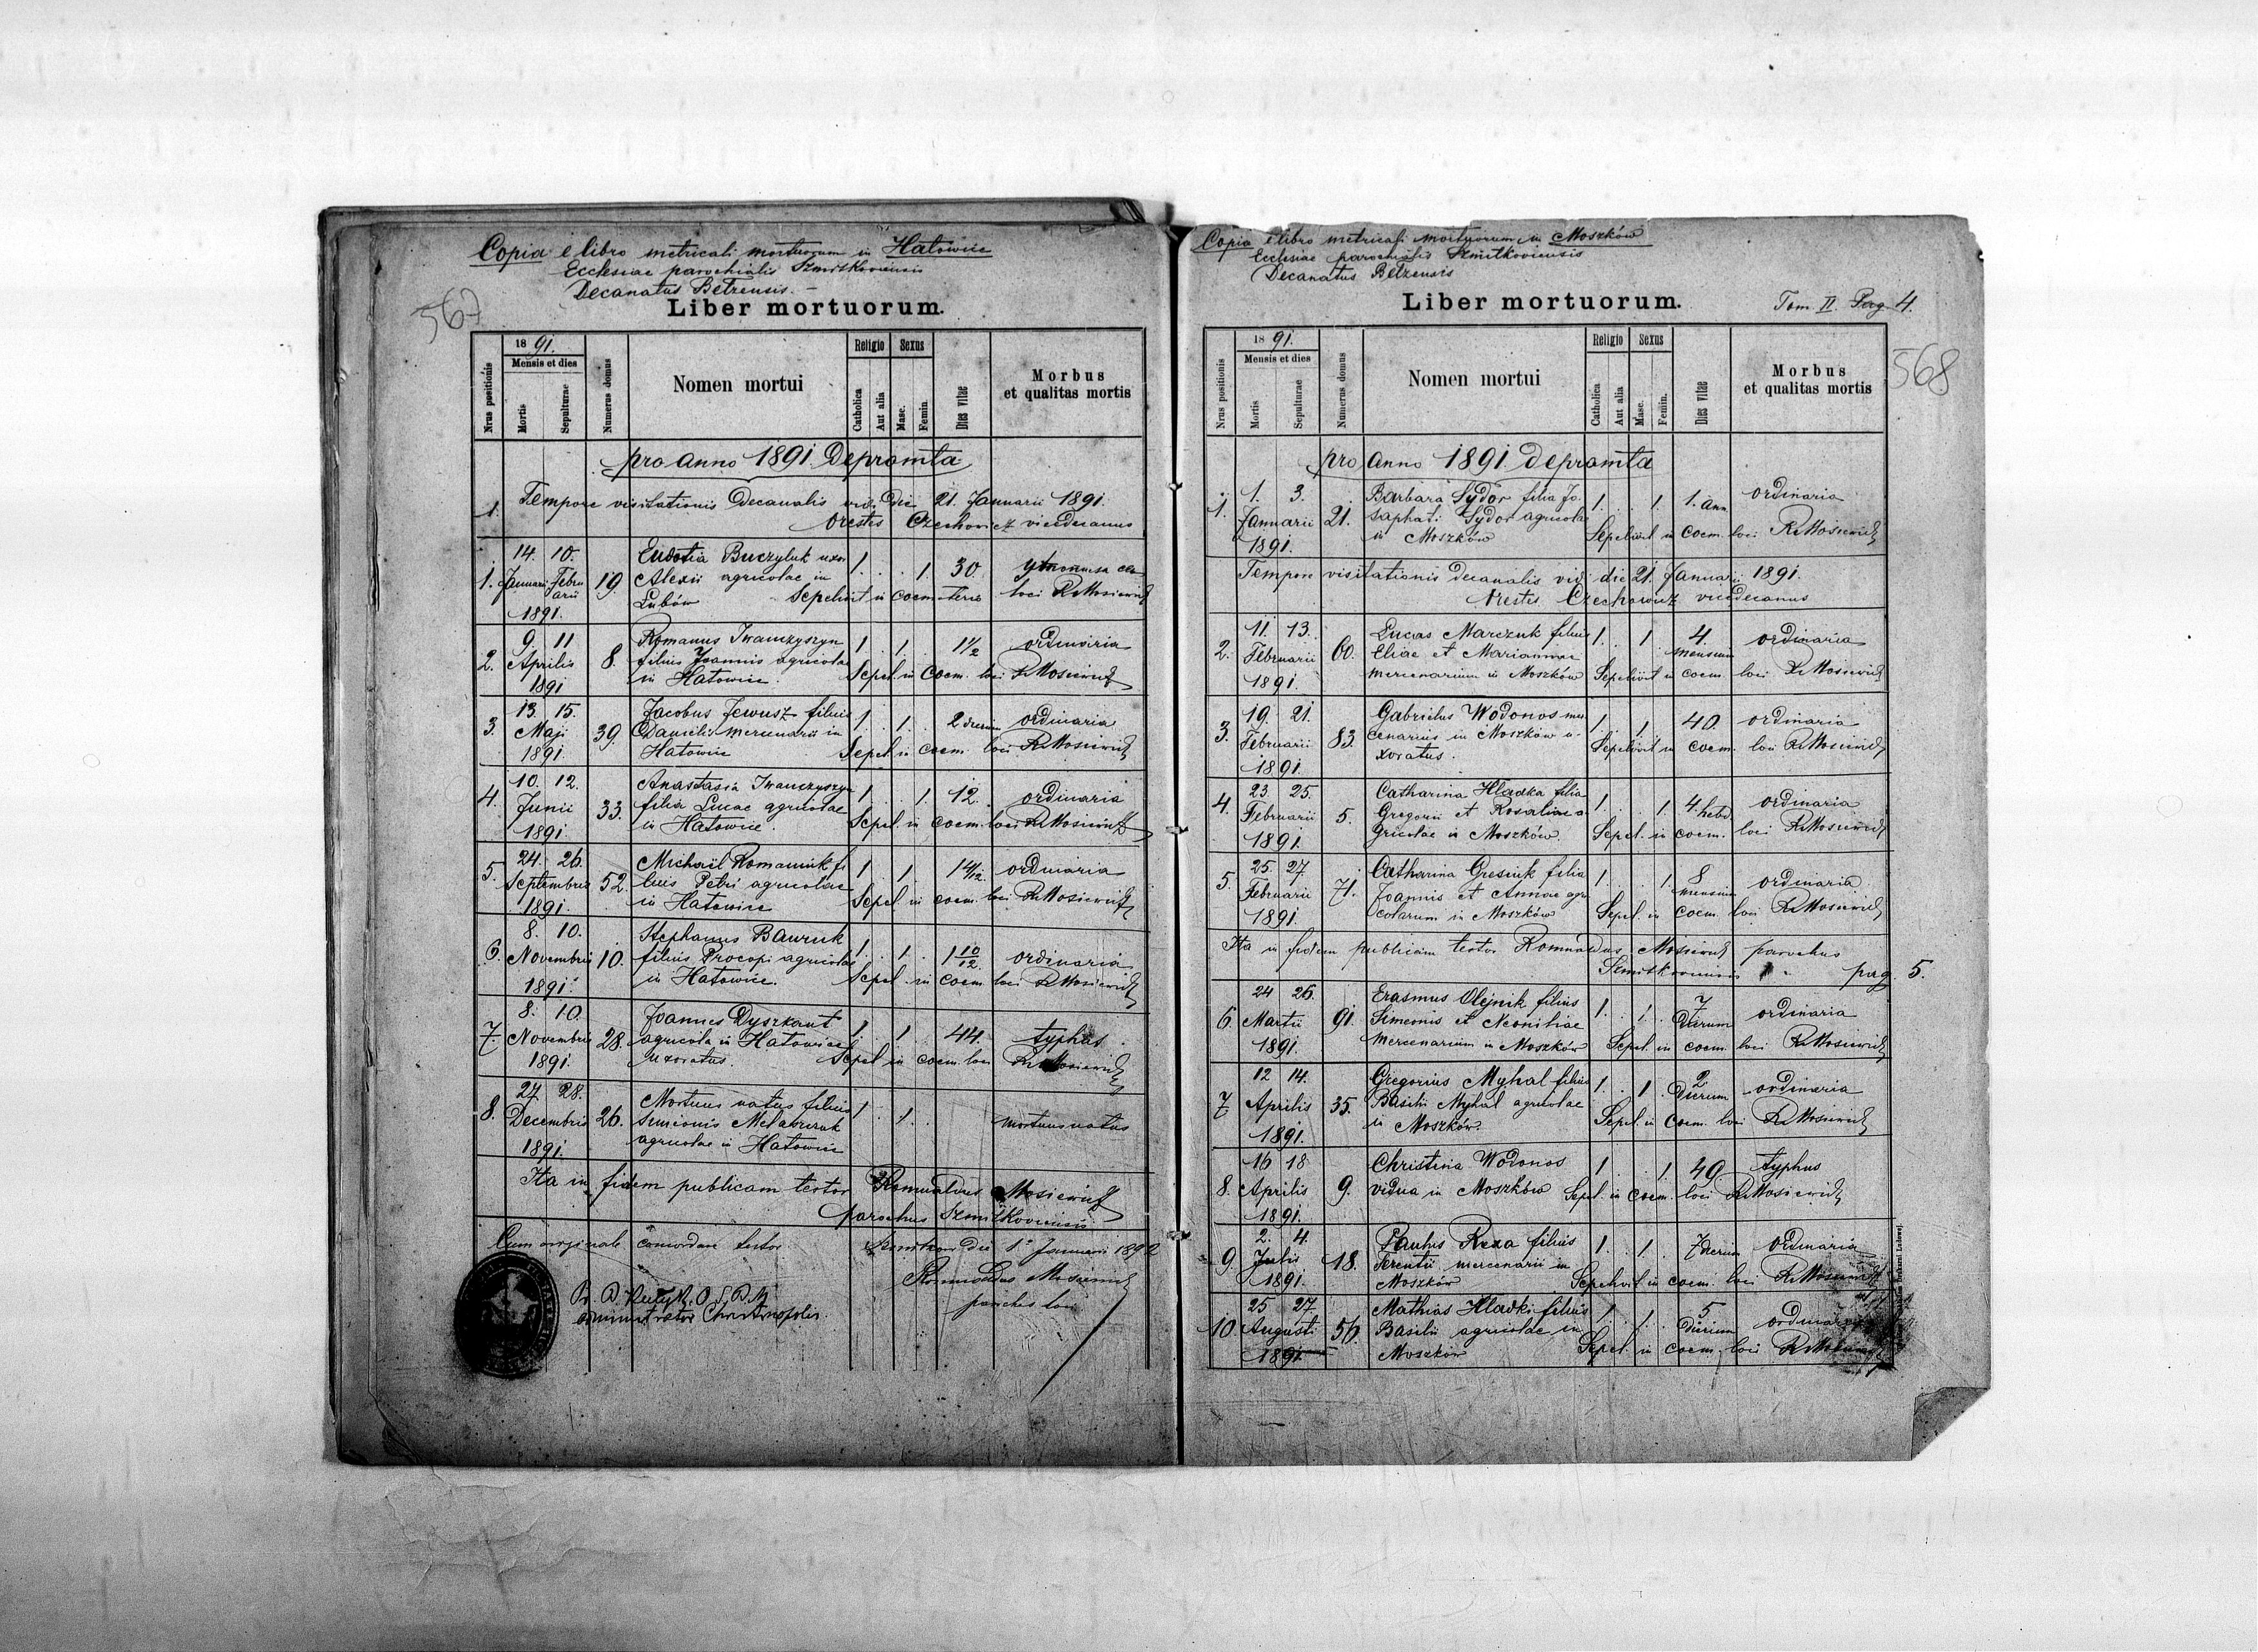 Copia e libro metricali mortuorum in Hatowice
Ecclesiae parochialis Szmitkoviensis
Decanatus Belzensis. –
567
Liber mortuorum.
Nrus positionis
1891.
Mensis et dies
Mortis
Sepulturae
Numerus domus
Nomen mortui
Religio
Catholica
Aut alia
Sexus
Masc.
Femin.
Dies vitae
Morbus
et qualitas mortis
pro anno 1891 Depromta
1. Tempore visitationis Decanalis vidi Die 21. Januarii 1891.
Orestes Czechowicz vicedecanus
14. 10. Eudotia Buczyluk uxor
1. Januarii Februarii 19. Alexii agricolae in 1. 1. 30.
1891. Lubów Sepelivit in coemeterio loci R Mosiewicz
9. 11 Romanus Iwanczyszyn
2. Aprilis 8. filius Joannis agricolae 1. 1. 1 1/2 ordinaria
1891 in Hatowice. Sepel. in coem. loci R Mosiewicz
13. 15. Jacobus Jewusz filius
3. Maji 39. Danielis mercenarii in 1. 1. 2 dierum ordinaria
1891. Hatowice Sepel. in coem. loci R Mosiewicz
10. 12. Anastasia Iwanczyszyn
4. Junii 33. filia Lucae agricolae 1. 1. 12. ordinaria
1891. in Hatowice. Sepel. in coem. loci R Mosiewicz
24. 26. Michaël Romaniuk fi
5. Septembris 52. lius Petri agricolae 1. 1. 1 4/12. ordinaria
1891. in Hatowice Sepel. in coem. loci R Mosiewicz
8. 10. Stephanus Bawruk
6. Novembris 10. filius Procopi agricolae 1. 1. 1 10/12. ordinaria
1891. in Hatowice. Sepel. in coem. loci R Mosiewicz
8. 10. Joannes Dyszkant
7. Novembris 28. agricola in Hatowice 1. 1. 44. typhus.
1891. uxoratus. Sepel. in coem. loci R Mosiewicz
27. 28. Mortuus natus filius
8. Decembris 26. Simeonis 1. 1. mortuus natus
1891. agricolae in Hatowice
Ita in fidem publicam testor Romualdus Mosiewicz
parochus Szmitkoviensis
Cum originale concordare testor Szmitkow Die 1 Januarii 1892
Romualdus Mosiewicz
parochus loci
administrator Christinopolis.
Copia e libro metricali mortuorum in Moszków
Ecclesiae parochialis Szmitkoviensis
Decanatus Belzensis
Liber mortuorum.
Tom II. Pag 4.
568
Nrus positionis
1891.
Mensis et dies
Mortis
Sepulturae
Numerus domus
Nomen mortui
Religio
Catholica
Aut alia
Sexus
Masc.
Femin.
Dies vitae
Morbus
et qualitas mortis
pro anno 1891 depromta
1. 3. Barbara Sydor filia Jo
1. Januarii 21. saphati Sydor agricolae 1. 1. 1. ann. ordinaria
1891. in Moszków Sepelivit in coem. loci R Mosiewicz
Tempore visitationis decanalis vidi die 21. Januarii 1891.
Orestes Czechowicz vicedecanus
11. 13. Lucas Marczuk filius
2. Februarii 60. Eliae et Mariannae 1. 1 4 mensium ordinaria
1891. mercenarium in Moszków Sepelivit in coem. loci R Mosiewicz
19. 21. Gabrielus Wodonos mer
3. Februarii 83. cenarius in Moszków u- 1. 1. 40. ordinaria
1891. xoratus. Sepelivit in coem. loci R Mosiewicz
23. 25. Catharina Hladka filia
4. Februarii 5. Gregorii et Rosaliae a- 1. 1. 4 hebd. ordinaria
1891. gricolae in Moszków. Sepel. in coem. loci R Mosiewicz
25. 27 Catharina Gresiuk filia
5. Februarii 71. Joannis et Annae agri 1. 1. 8 mensium ordinaria
1891. colarum in Moszków Sepel. in coem. loci R Mosiewicz
Ita in fidem publicam testor Romualdus Mosiewicz parochus
Szmitkoviensis pag. 5.
24 26. Erasmus Olejnik filius
6. Martii 91. Simeonis et Neoniliae 1. 1. 7 Dierum ordinaria
1891. mercenarium in Moszków Sepel. in coem. loci R Mosiewicz
12 14. Gregorius Myhal filius
7 Aprilis 35. Basilii Myhal agricolae 1. 1. 2 Dierum ordinaria
1891. in Moszków. Sepel. in coem. loci R Mosiewicz
16 18 Christina Wodonos
8. Aprilis 9. vidua in Moszków 1. 1. 49. typhus
1891. Sepel. in coem. loci R Mosiewicz
2. 4. Paulus Reza filius
9. Julii 18. Terentii mercenarii in 1. 1. 7 dierum ordinaria
1891. Moszków Sepelivit in coem. loci R Mosiewicz
25 27 Mathias Hladki filius
10. Augusti 56. Basilii agricolae in 1. 1. 5 Dierum ordinaria
1891 Moszków Sepel. in coem. loci R Mosiewicz